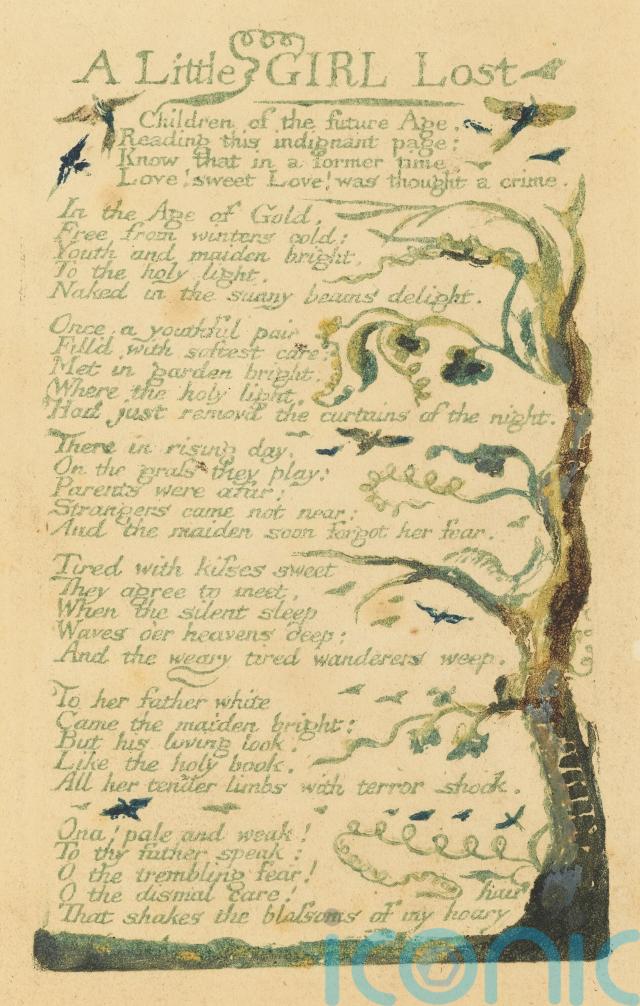 A Little GIRL Lost
Children of the future Age,
Reading this indignant page;
Know that in a former time
Love! sweet Love! was thought a crime.
In the Age of Gold,
Free from winters cold:
Youth and maiden bright,
To the holy light,
Naked in the sunny beams delight.
Once a youthful pair
Fill'd with softest care:
Met in garden bright,
Where the holy light,
Had just removd the curtains of the night.
There in rising day,
On the grass they play:
Parents were afar:
Strangers came not near:
And the maiden soon forgot her fear.
Tired with kisses sweet
They agree to meet,
When the silent sleep
Waves oer heavens deep:
And the weary tired wanderers weep.
To her father white
Came the maiden bright:
But his loving look,
Like the holy book,
All her tender limbs with terror shook.
Ona! pale and weak!
To thy father speak:
O the trembling fear!
O the dismal care!
hair
That shakes the blossoms of my hoary
iconic